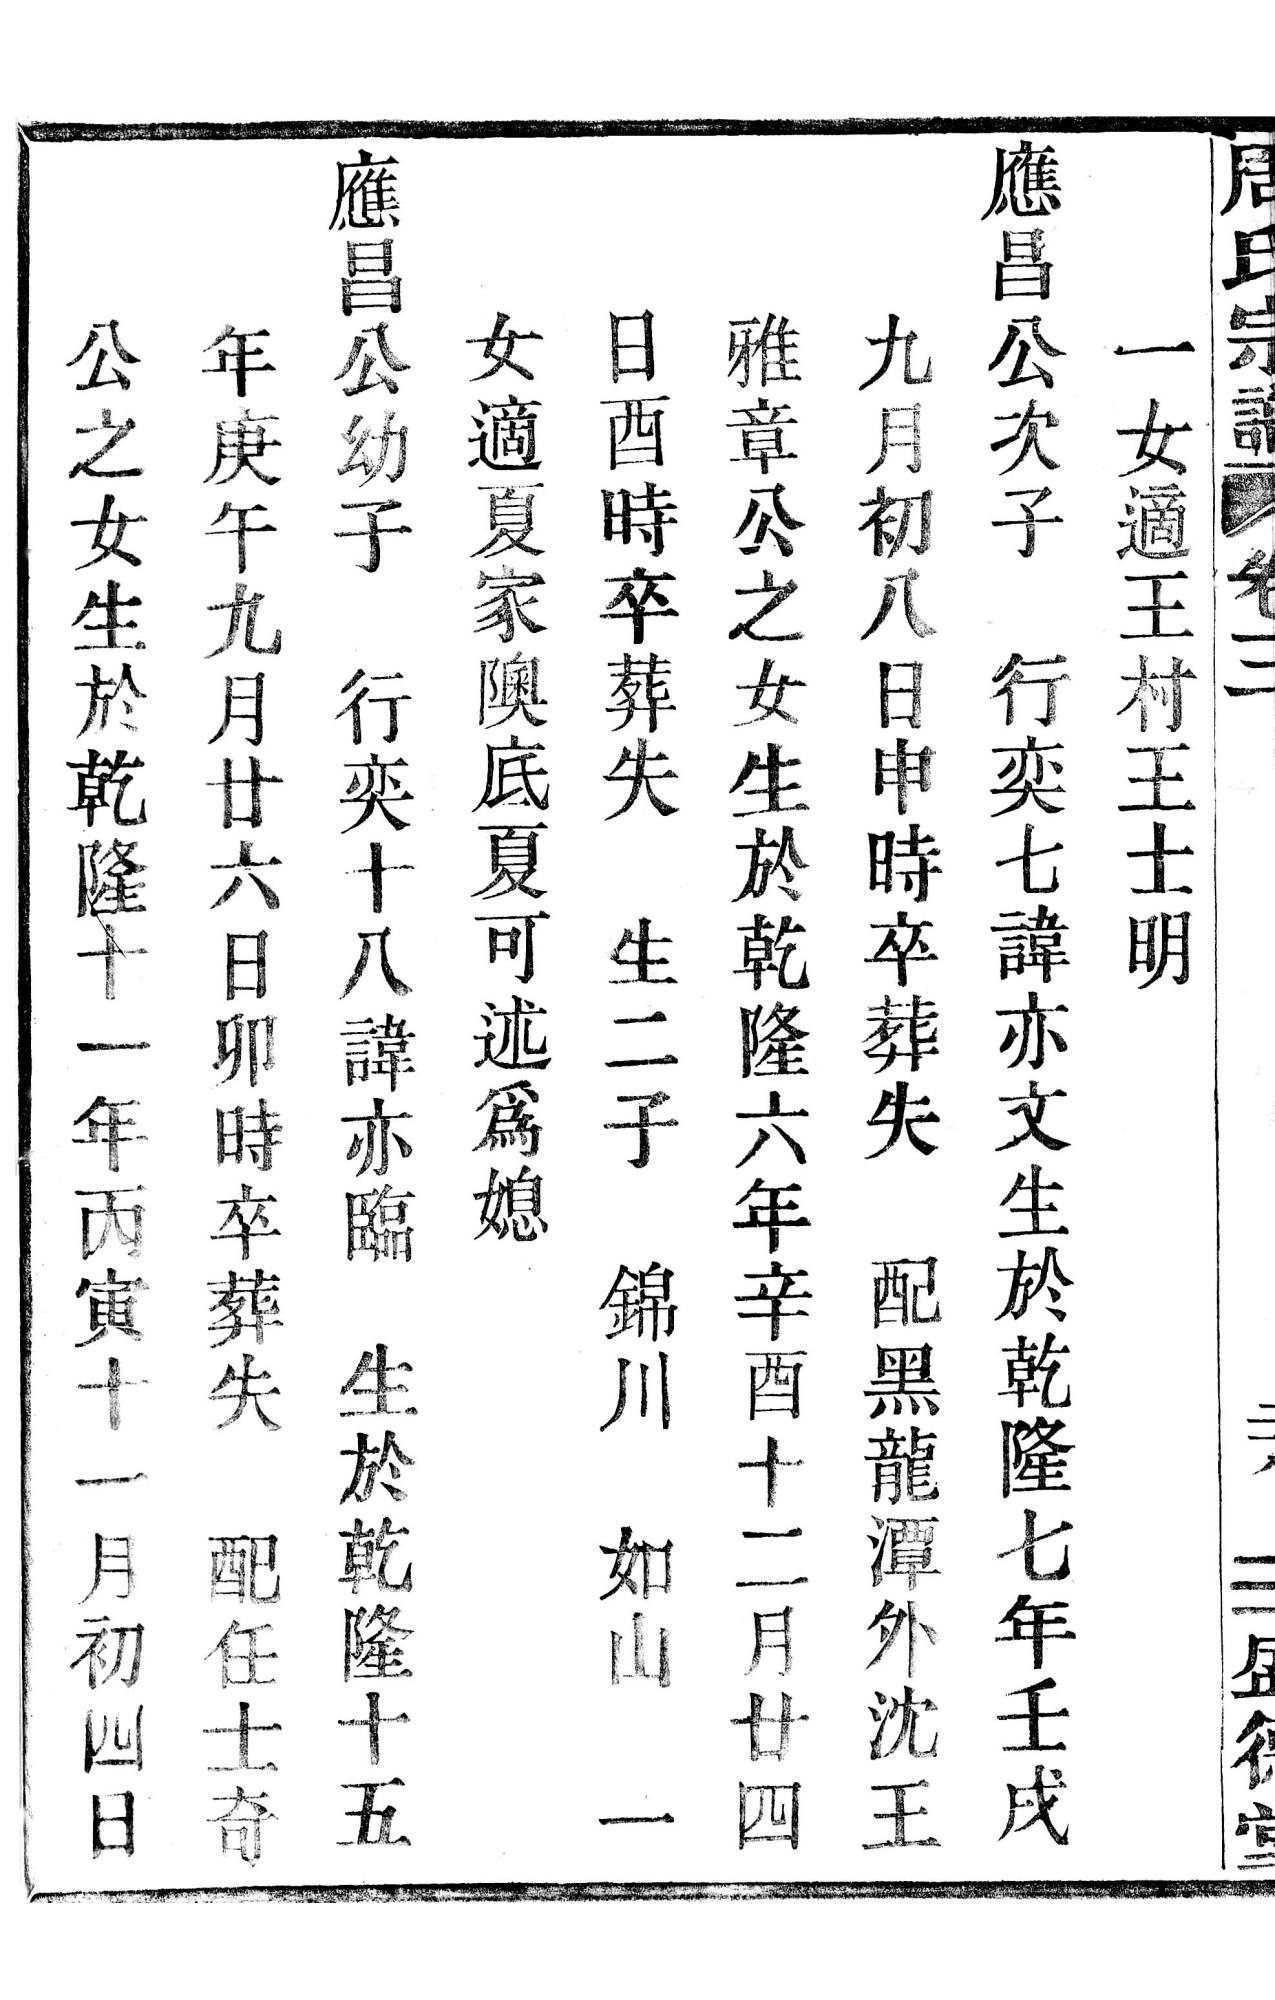 周氏宗譜 卷二 三盛德堂
一女適王村王士明
應昌公次子 行奕七諱亦文生於乾隆七年壬戌
九月初八日申時卒葬失 配黑龍潭外沈王
雅章公之女生於乾隆六年辛酉十二月廿四
日酉時卒葬失 生二子 錦川 如山 一
女適夏家隩底夏可述爲媳
應昌公幼子 行奕十八諱亦臨 生於乾隆十五
年庚午九月廿六日卯時卒葬失 配任士奇
公之女生於乾隆十一年丙寅十一月初四日